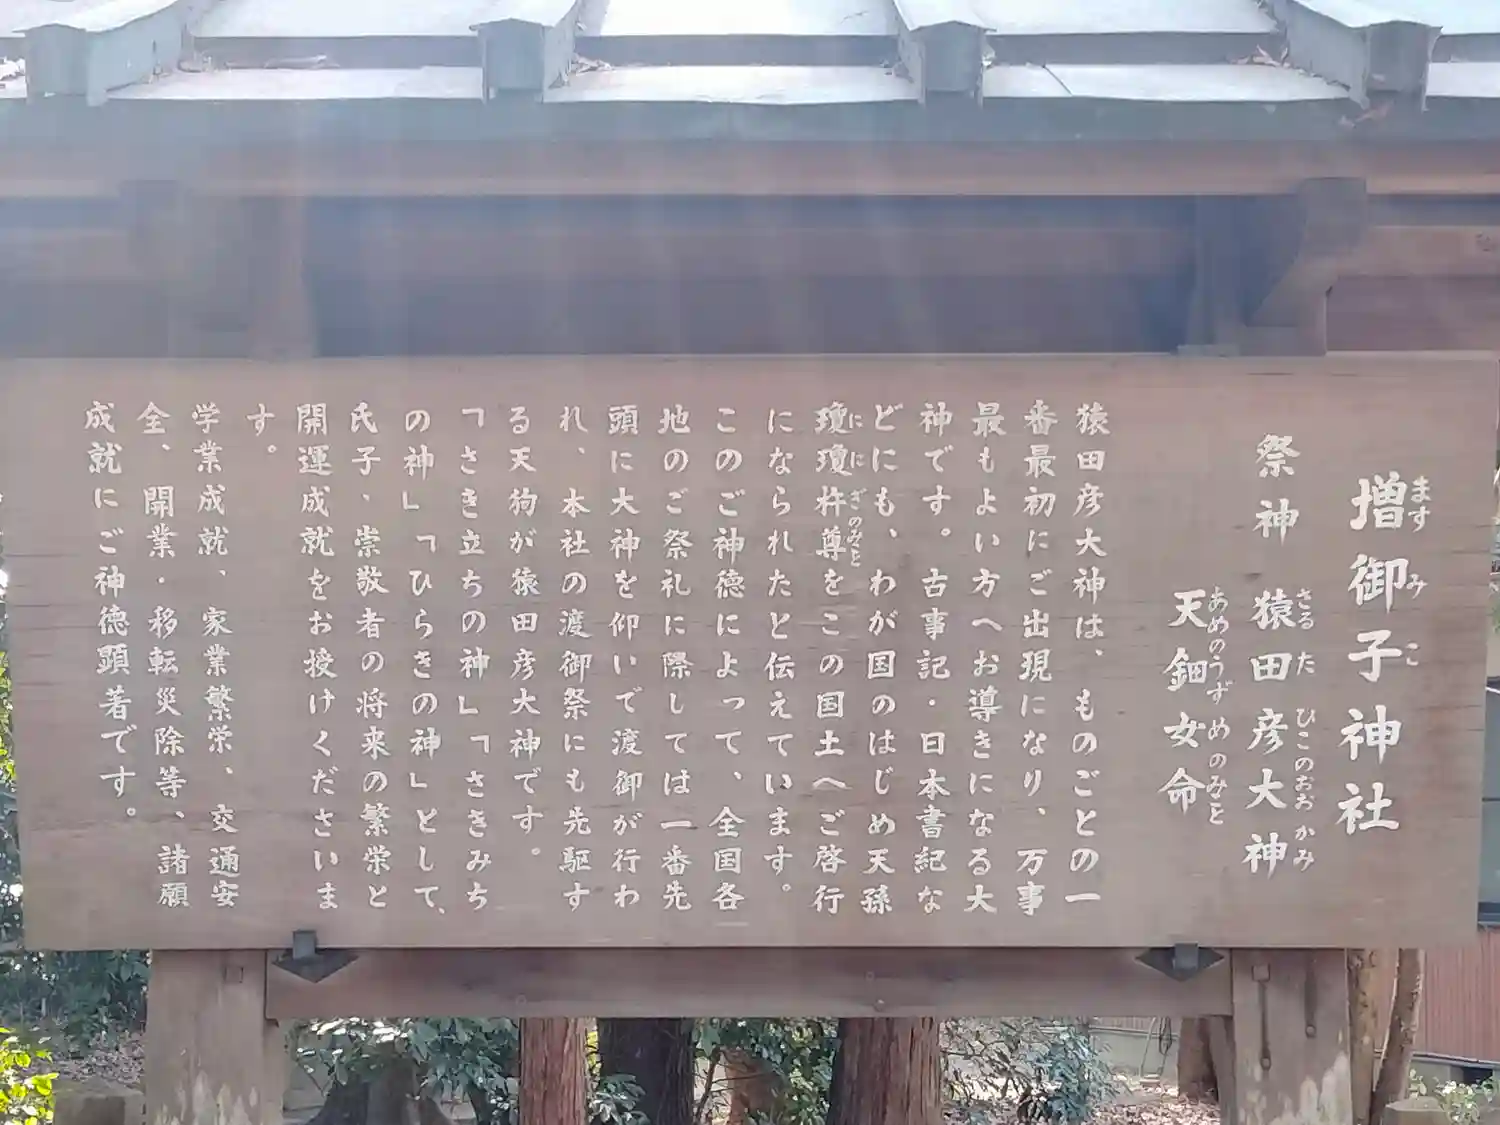 増御子神社
ますみこ
祭神 猿田彦大神
さるたひこのおおかみ
天鈿女命
あめのうずめのみこと
猿田彦大神は、ものごとの一
番最初にご出現になり、万事
最もよい方へお導きになる大
神です。古事記・日本書紀な
どにも、わが国のはじめ天孫
瓊瓊杵尊をこの国土へご啓行
ににぎのみこと
になられたと伝えています。
このご神徳によって、全国各
地のご祭礼に際しては一番先
頭に大神を仰いで渡御が行わ
れ、本社の渡御祭にも先駆す
る天狗が猿田彦大神です。
「さき立ちの神」「さきみち
の神」「ひらきの神」として、
氏子、崇敬者の将来の繁栄と
開運成就をお授けくださいま
す。
学業成就、家業繁栄、交通安
全、開業・移転災除等、諸願
成就にご神徳顕著です。